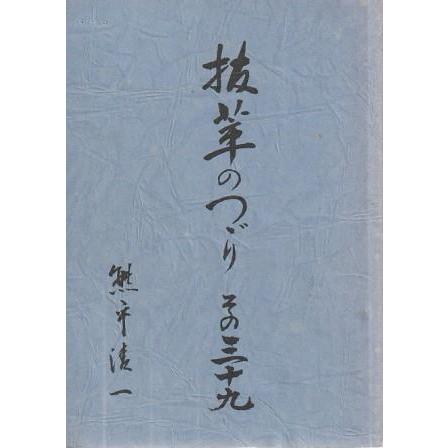 抜萃のつゞり その三十九
熊平清一